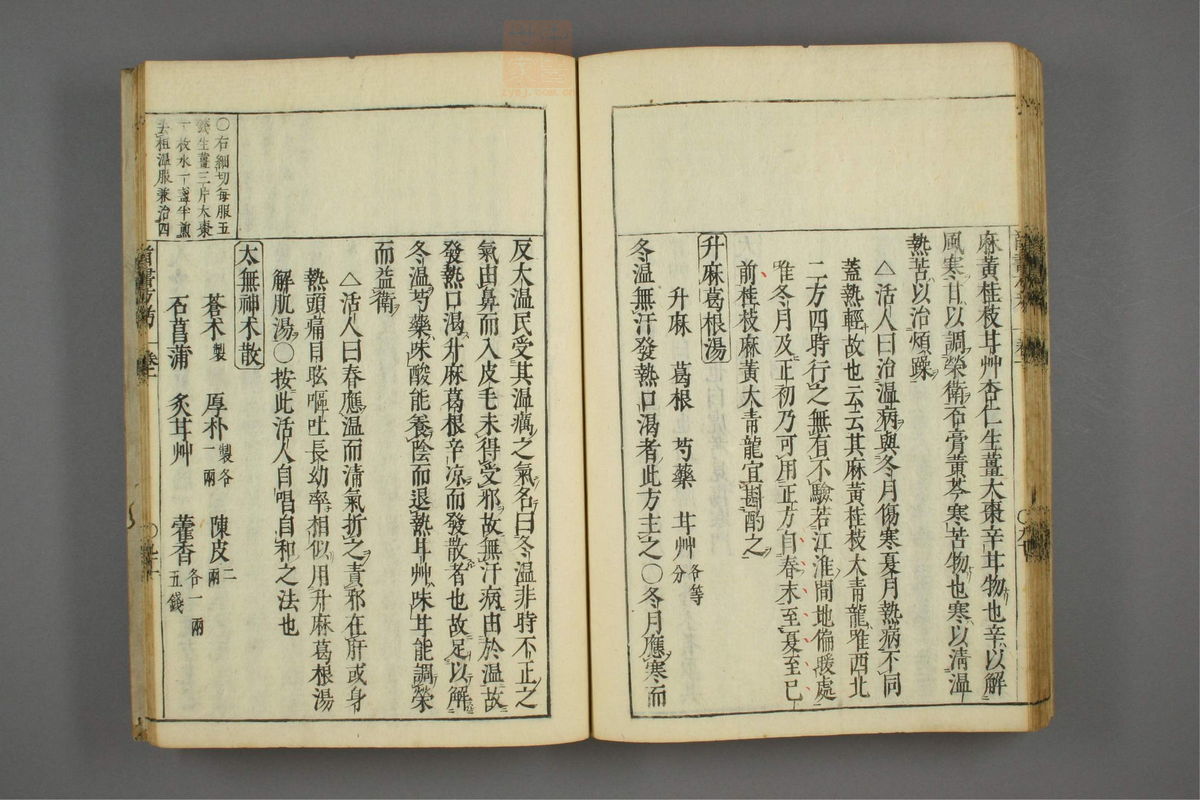 麻黃桂枝甘艸杏仁生薑大棗辛甘物也辛以解
風寒甘以調榮衛石膏黃芩寒苦物也寒以淸温
熱苦以治煩躁
△活人曰治温病與冬月傷寒夏月熱病不同
蓋熱輕故也云云其麻黃桂枝大青龍唯西北
二方四時行之無有不驗若江淮間地偏暖處
唯冬月及正初乃可用正方自春末至夏至已
前桂枝麻黃大青龍宜斟酌之
升麻葛根湯
升麻 葛根 芍藥 甘艸各等分
冬温無汗發熱口渴者此方主之〇冬月應寒而
反大温民受其温癘之氣名曰冬温非時不正之
氣由鼻而入皮毛未得受邪故無汗病由於温故
發熱口渴升麻葛根辛凉而發散者也故足以解
冬温芍藥味酸能養陰而退熱甘艸味甘能調榮
而益衛
△活人曰春應温而清氣折之責邪在肝或身
熱頭痛目眩嘔吐長幼率相似用升麻葛根湯
解肌湯〇按此活人自唱自和之法也
太無神朮散
蒼朮製 厚朴製各一兩 陳皮二兩
石菖蒲 炙甘艸 藿香各一兩五錢
〇右細切每服五
錢生薑三片大棗
一枚水一盞半煎
去柤温服兼治四